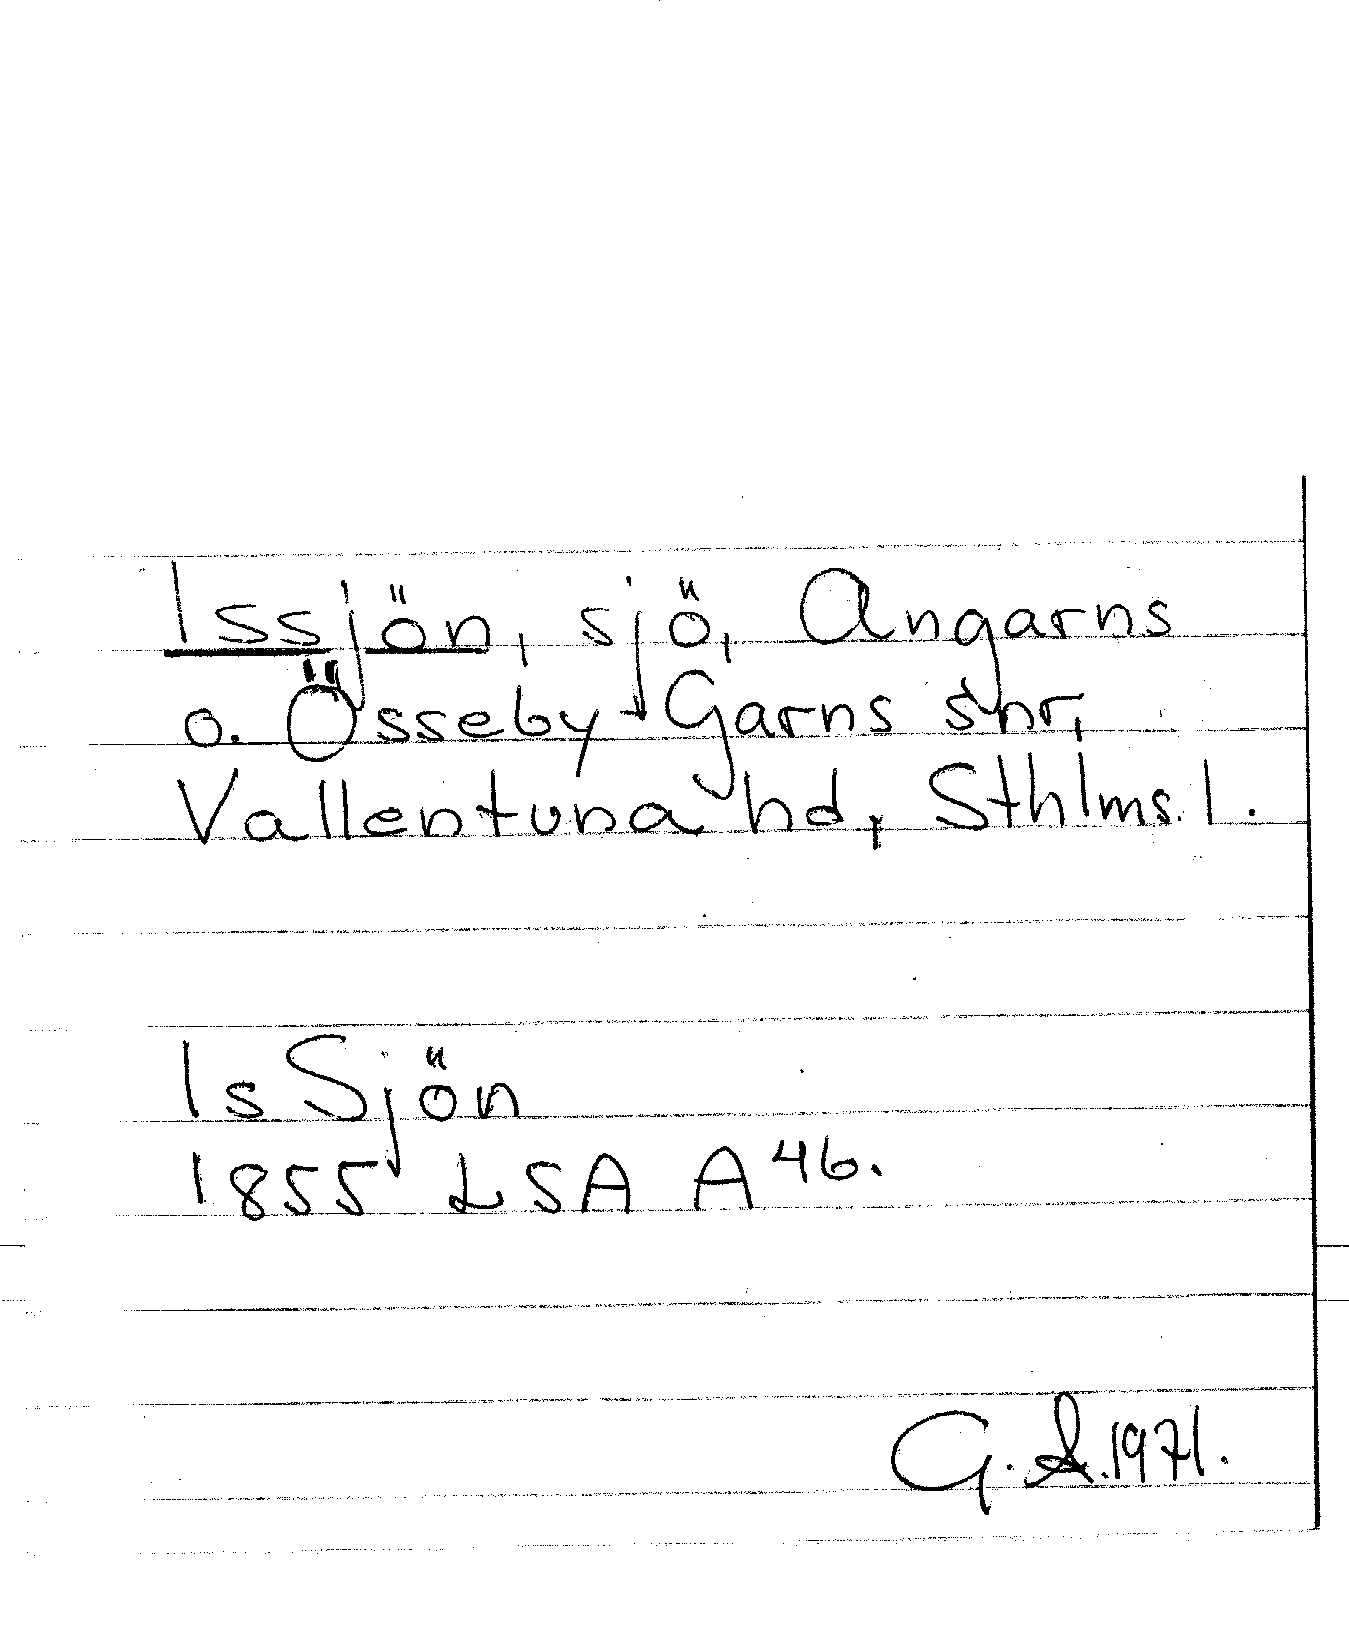 Issjön, sjö, Angarns
o. Össeby-Garns snr,
Vallentuna hd, Sthlms. l.
Is Sjön
1855 LSA A 46.
G. S. 1971.